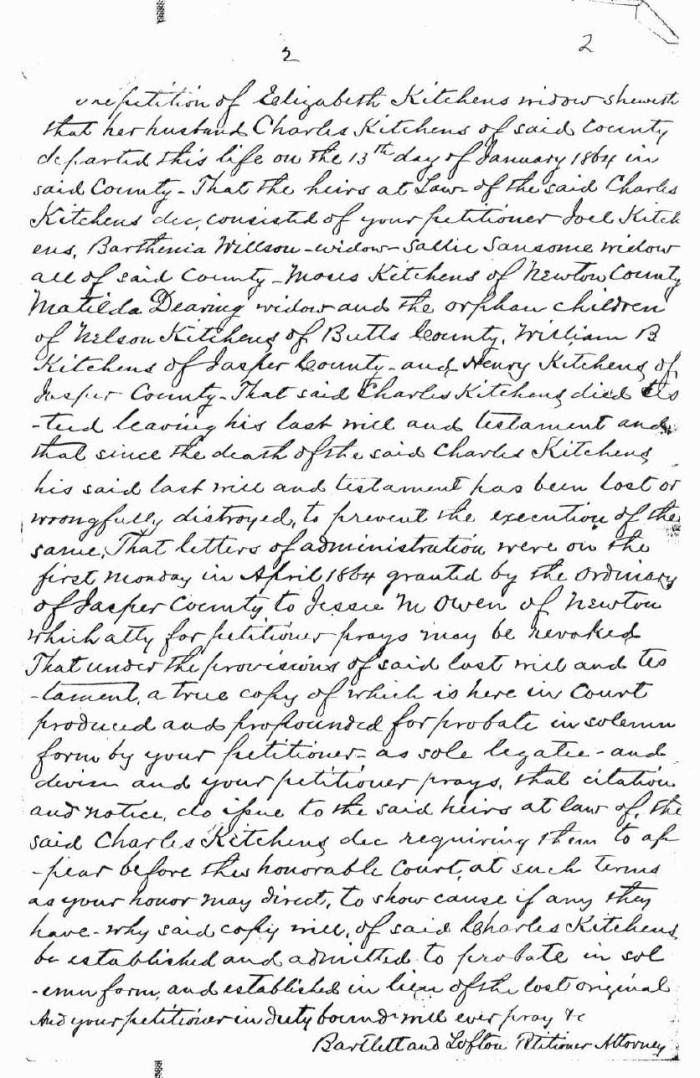 2 2
petition of Elizabeth Kitchens widow sheweth
that her husband Charles Kitchens of said County
departed this life on the 13th day of January 1864 in
said County - That the heirs at Law of the said Charles
Kitchens dec, consisted of your petitioner Joel Kitch
ens, Barthenia Willson - widow - Sallie Sansome widow
all of said County - Moses Kitchens of Newton County
Matilda Dearing widow and the orphan children
of Nelson Kitchens of Butts County, William B
Kitchens of Jasper County - and Henry Kitchens of
Jasper County - That said Charles Kitchens died tes
-ted leaving his last will and testament and
that since the death of the said Charles Kitchens
his said last will and testament has been lost or
wrongfully distroyed, to prevent the execution of the
same, That letters of administration were on the
first Monday in April 1864 granted by the Ordinary
of Jasper County to Jessie M Owen of Newton
which atty for petitioner prays may be revoked
That under the provisions of said last will and tes
-tament, a true copy of which is here in Court
produced and propounded for probate in solemn
form by your petitioner - as sole legatee - and
and your petitioner prays, that citation
and notice, do issue to the said heirs at law of, the
said Charles Kitchens dec requiring them to ap
-pear before this honorable Court, at such terms
as your honor may direct, to show cause if any they
have - why said copy will, of said Charles Kitchens
be established and admitted to probate in sol
-emn form, and established in lieu of the lost original
And your petitioner in duty bound will ever pray &c
Bartlett and Lofton Petitioner Attorney